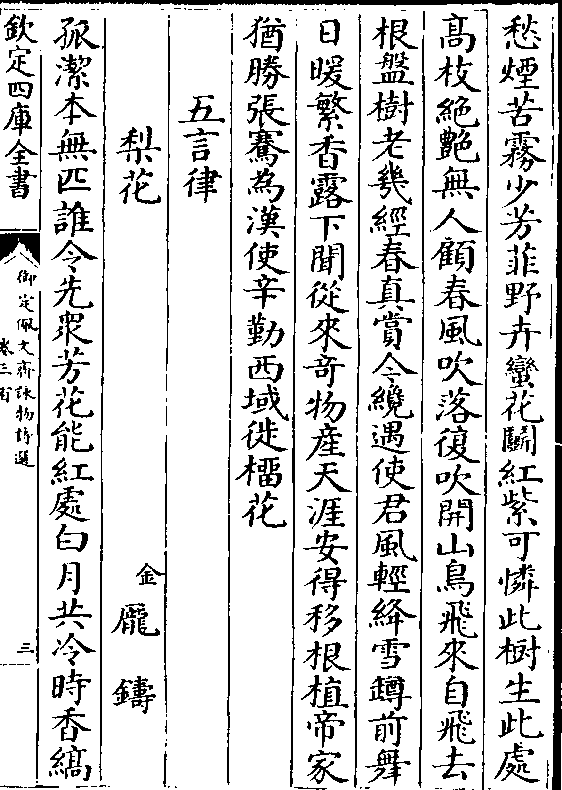 愁煙苦霧少芳菲野卉蠻花鬭紅紫可憐此樹生此處
高枝絶艷無人顧春風吹落復吹開山鳥飛來自飛去
根盤樹老幾經春真賞今纔遇使君風輕絳雪罇前舞
日暖繁香露下聞從來奇物産天涯安得移根植帝家
猶勝張騫為漢使辛勤西域徙橊花
五言律
梨花
金龎鑄
孤潔本無匹誰令先衆芳花能紅處白月共冷時香縞
欽定四庫全書
御定佩文齋詠物詩選
卷三百
三